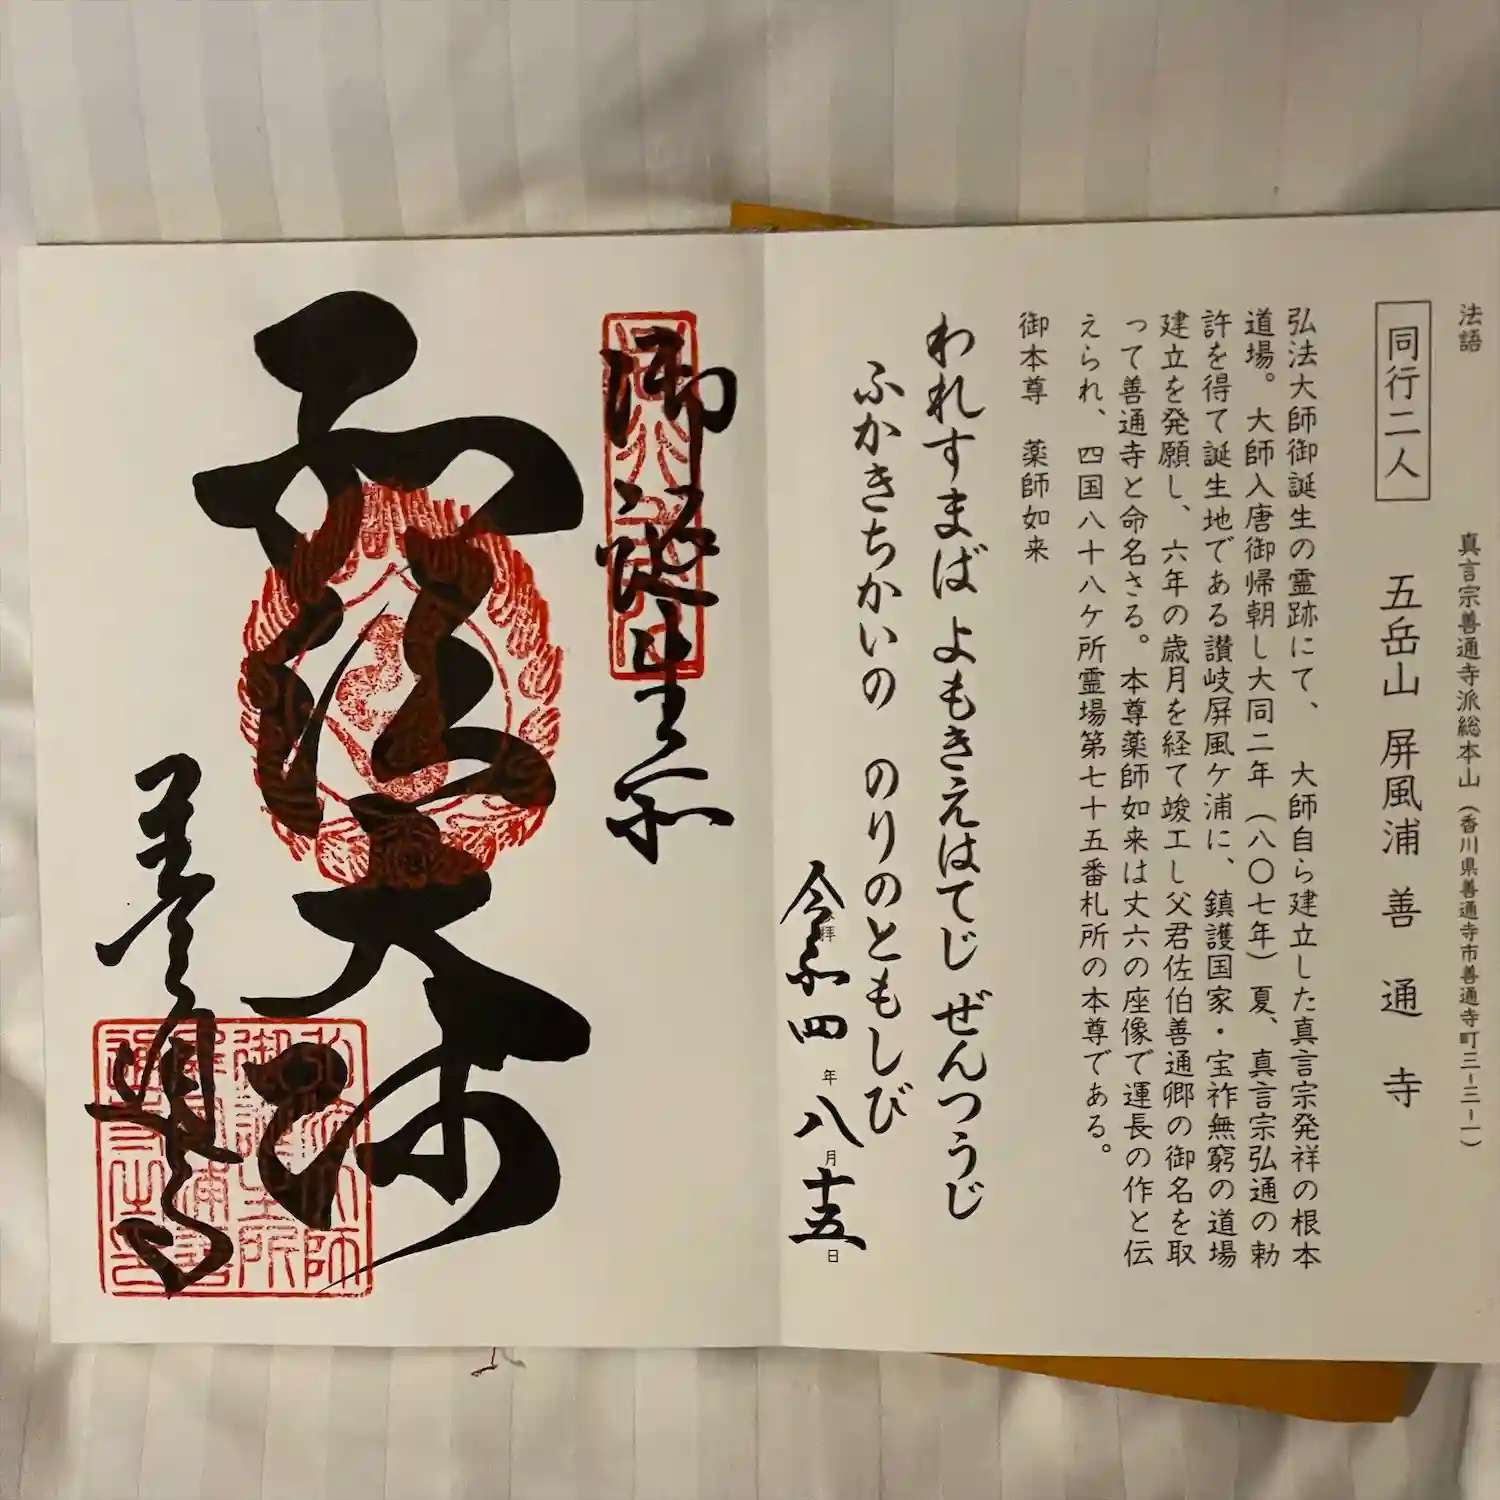 法語
真言宗善通寺派総本山(香川県善通寺市善通寺町三ー三ー一)
同行二人
五岳山 屏風浦 善通寺
弘法大師御誕生の霊跡にて、大師自ら建立した真言宗発祥の根本
道場。大師入唐御帰朝し大同二年(八〇七年)夏、真言宗弘通の勅
許を得て誕生地である讃岐屏風ケ浦に、鎮護国家・宝祚無窮の道場
建立を発願し、六年の歳月を経て竣工し父君佐伯善通卿の御名を取
って善通寺と命名さる。本尊薬師如来は丈六の座像で運長の作と伝
えられ、四国八十八ケ所霊場第七十五番札所の本尊である。
御本尊 薬師如来
われすまば よもきえはてじ ぜんつうじ
ふかきちかいの のりのともしび
令和四年八月十五日
御誕生所
弘法大師
善通寺
弘法大師
御誕生所
屏風浦善
通寺之印